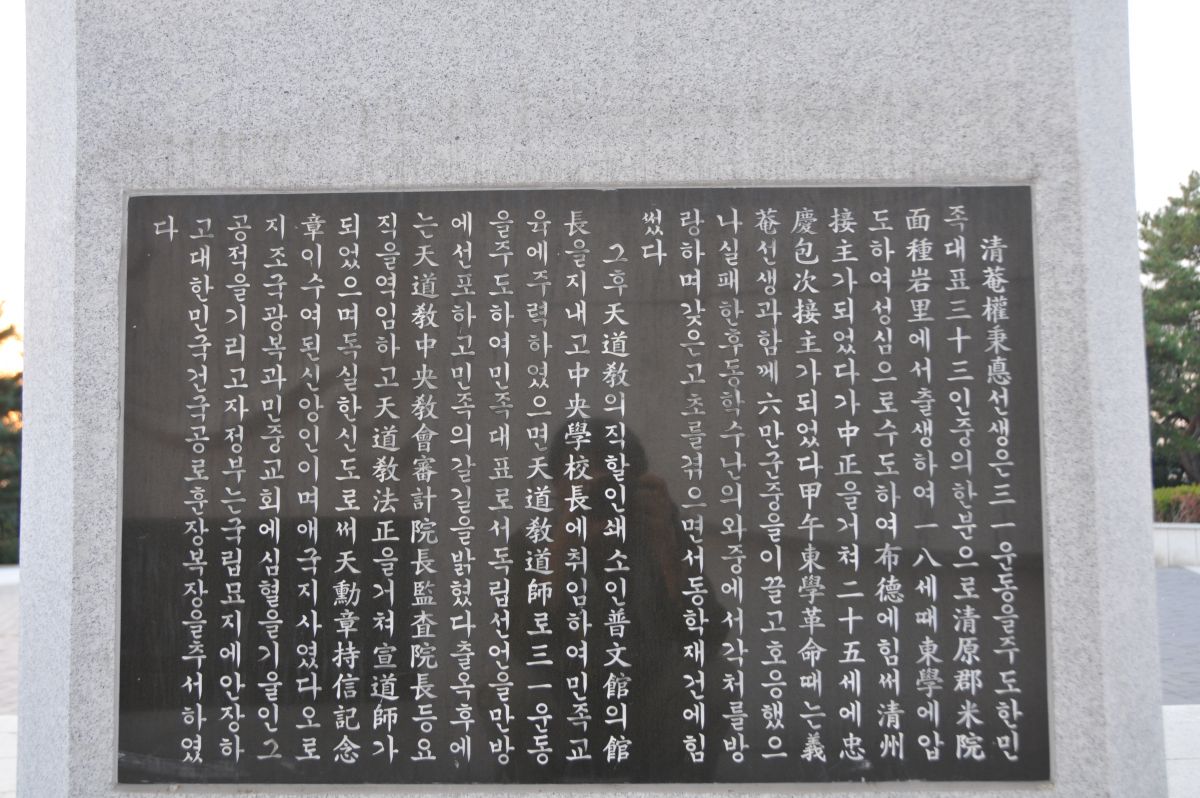 清菴權秉悳선생은三一운동을주도한민
족대표三十三인중의한분으로清原郡米院
面種岩里에서출생하여一八세때東學에입
도하여성심으로수도하여布德에힘써清州
接主가되었다가中正을거쳐二十五세에忠
慶包次接主가되었다甲午東學革命때는義
菴선생과함께六만군중을이끌고호응했으
나실패한후동학수난의와중에서각처를방
랑하며갖은고초를겪으면서동학재건에힘
썼다
그후天道敎의직할인쇄소인普文館의館
長을지내고中央學校長에취임하여민족교
육에주력하였으면天道敎道師로三一운동
을주도하여민족대표로서독립선언을만방
에선포하고민족의갈길을밝혔다출옥후에
는天道敎中央敎會審計院長監査院長등요
직을역임하고天道敎法正을거쳐宣道師가
되었으며독실한신도로써天勳章持信記念
章이수여된신앙인이며애국지사였다오로
지조국광복과민중교회에심혈을기울인그
공적을기리고자정부는국립묘지에안장하
고대한민국건국공로훈장복장을추서하였
다